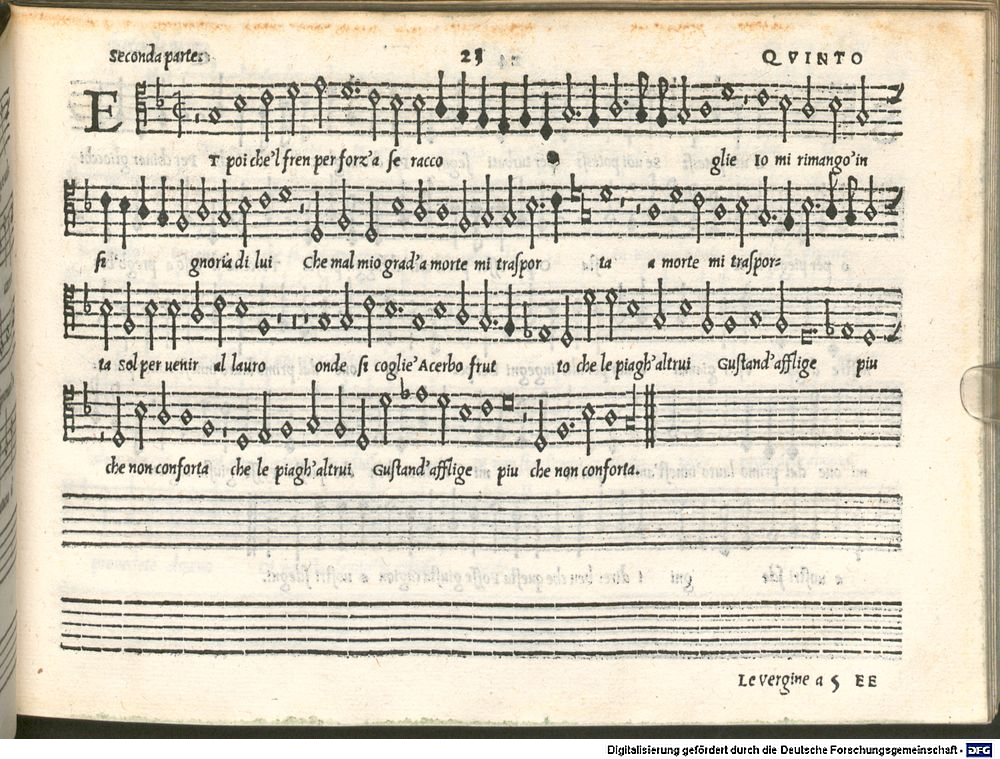 Seconda parte: 23 QVINTO
ET poi che'l fren per forz'a se racco glie Io mi rimango'in
si gnoria di lui Che mal mio grad'a morte mi traspor ta a morte mi traspor=
ta sol per venir al lauro onde si coglie' Acerbo frut to che le piagh'altrui Gustand'afflige piu
che non conforta che le piagh'altrui Gustand'afflige piu che non conforta.
Le Vergine a 5 EE
Digitalisierung gefördert durch die Deutsche Forschungsgemeinschaft - DFG